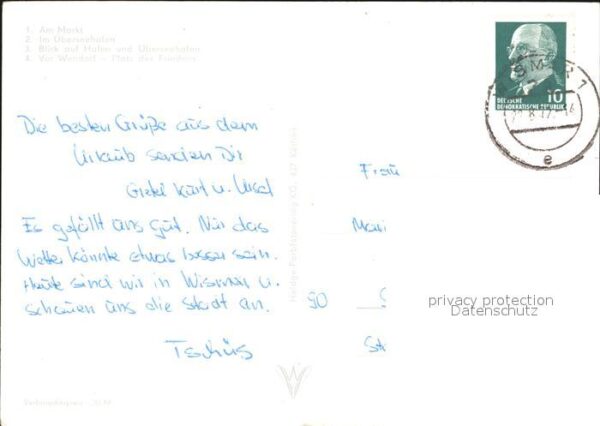 1. Am Markt
2. Im Überseehafen
3. Blick auf Hafen und Überseehafen
4. Vor Wendorf - Platz des Friedens
Die besten Grüße aus dem
Urlaub senden Dir
Gretel Kurt u. Ursel
Es gefällt uns gut. Nur das
Wetter könnte etwas besser sein.
Heute sind wir in Wismar u.
schauen uns die Stadt an.
Tschüs
Verkaufspreis
10
DEUTSCHE
DEMOKRATISCHE REPUBLIK
e
Frau
90
privacy protection
Datenschutz